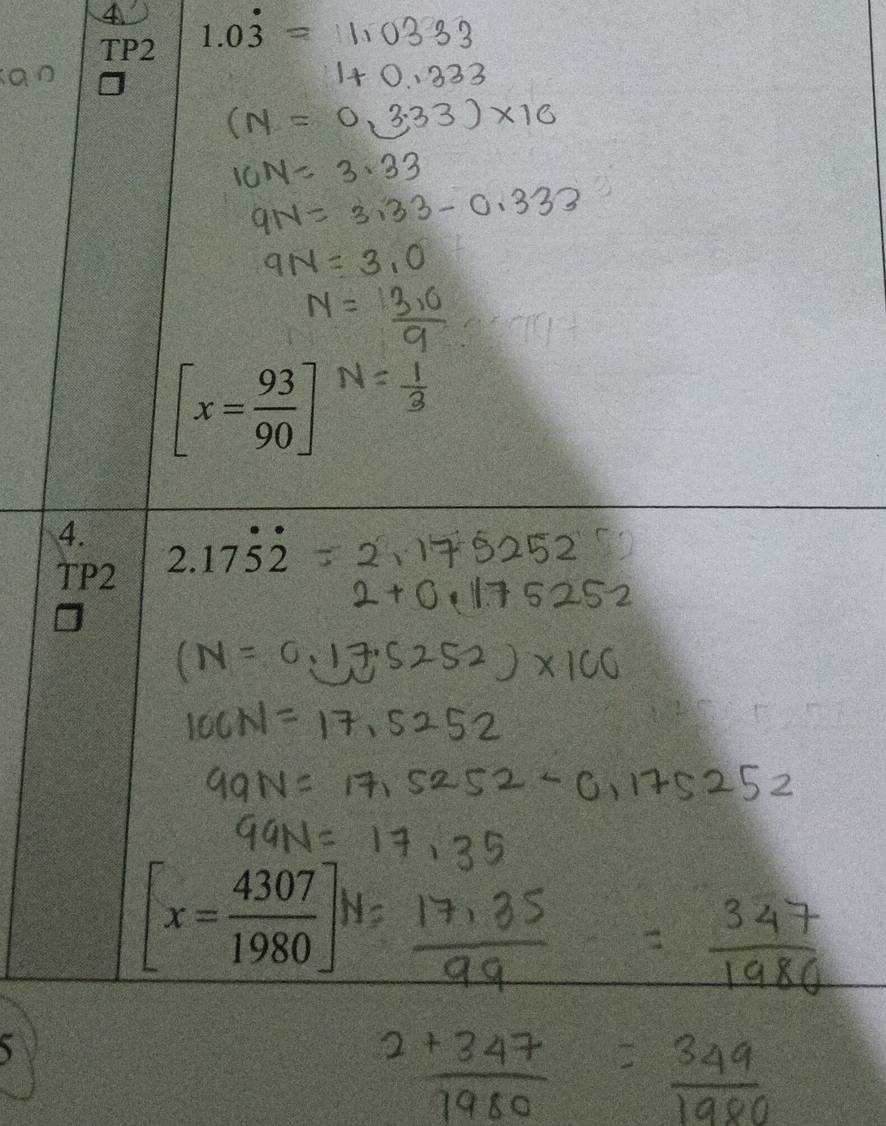 4.
TP2
1.03̇ = 1.0333
an
1 + 0.333
(N = 0.333) × 10
10N = 3.33
9N = 3.33 - 0.333
9N = 3.0
N = 3.0/9
[x = 93/90] N = 1/3
4.
TP2
2.175̇2̇ = 2.175252
2 + 0.175252
(N = 0.175252) × 100
100N = 17.5252
99N = 17.5252 - 0.175252
99N = 17.35
[x = 4307/1980] N = 17.35/99 = 347/1980
5
2 + 347/1980 = 349/1980